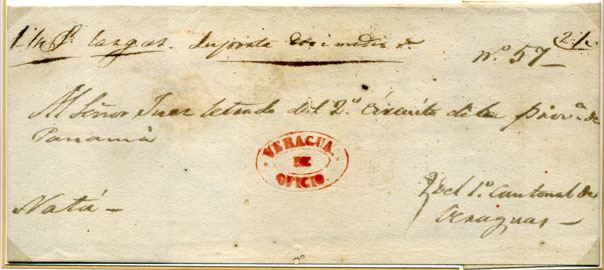 cargas. Importa dos i medio r.
2½
nº 57
Al Señor Juez letrado del 2º Circuito de la prov.ª de
Panamá
VERAGUA
DE
OFICIO
Natá—
del 1º Cantonal de
Veraguas—